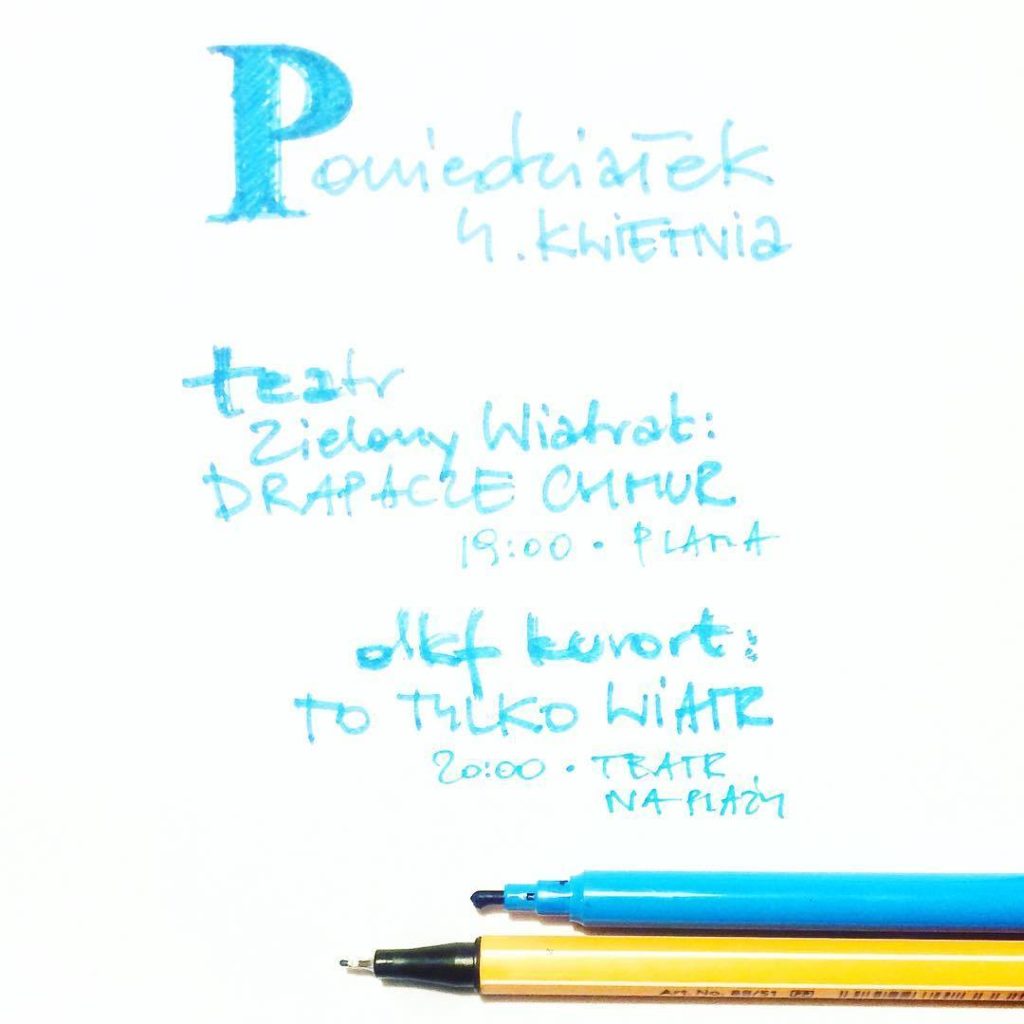 Poniedziałek
4. KWIETNIA
teatr
Zielony Wiatrak:
DRAPACZE CHMUR
19:00 • PLAMA
dkf kurort:
TO TYLKO WIATR
20:00 • TEATR
NA PLAŻY
Art. No. 88/51